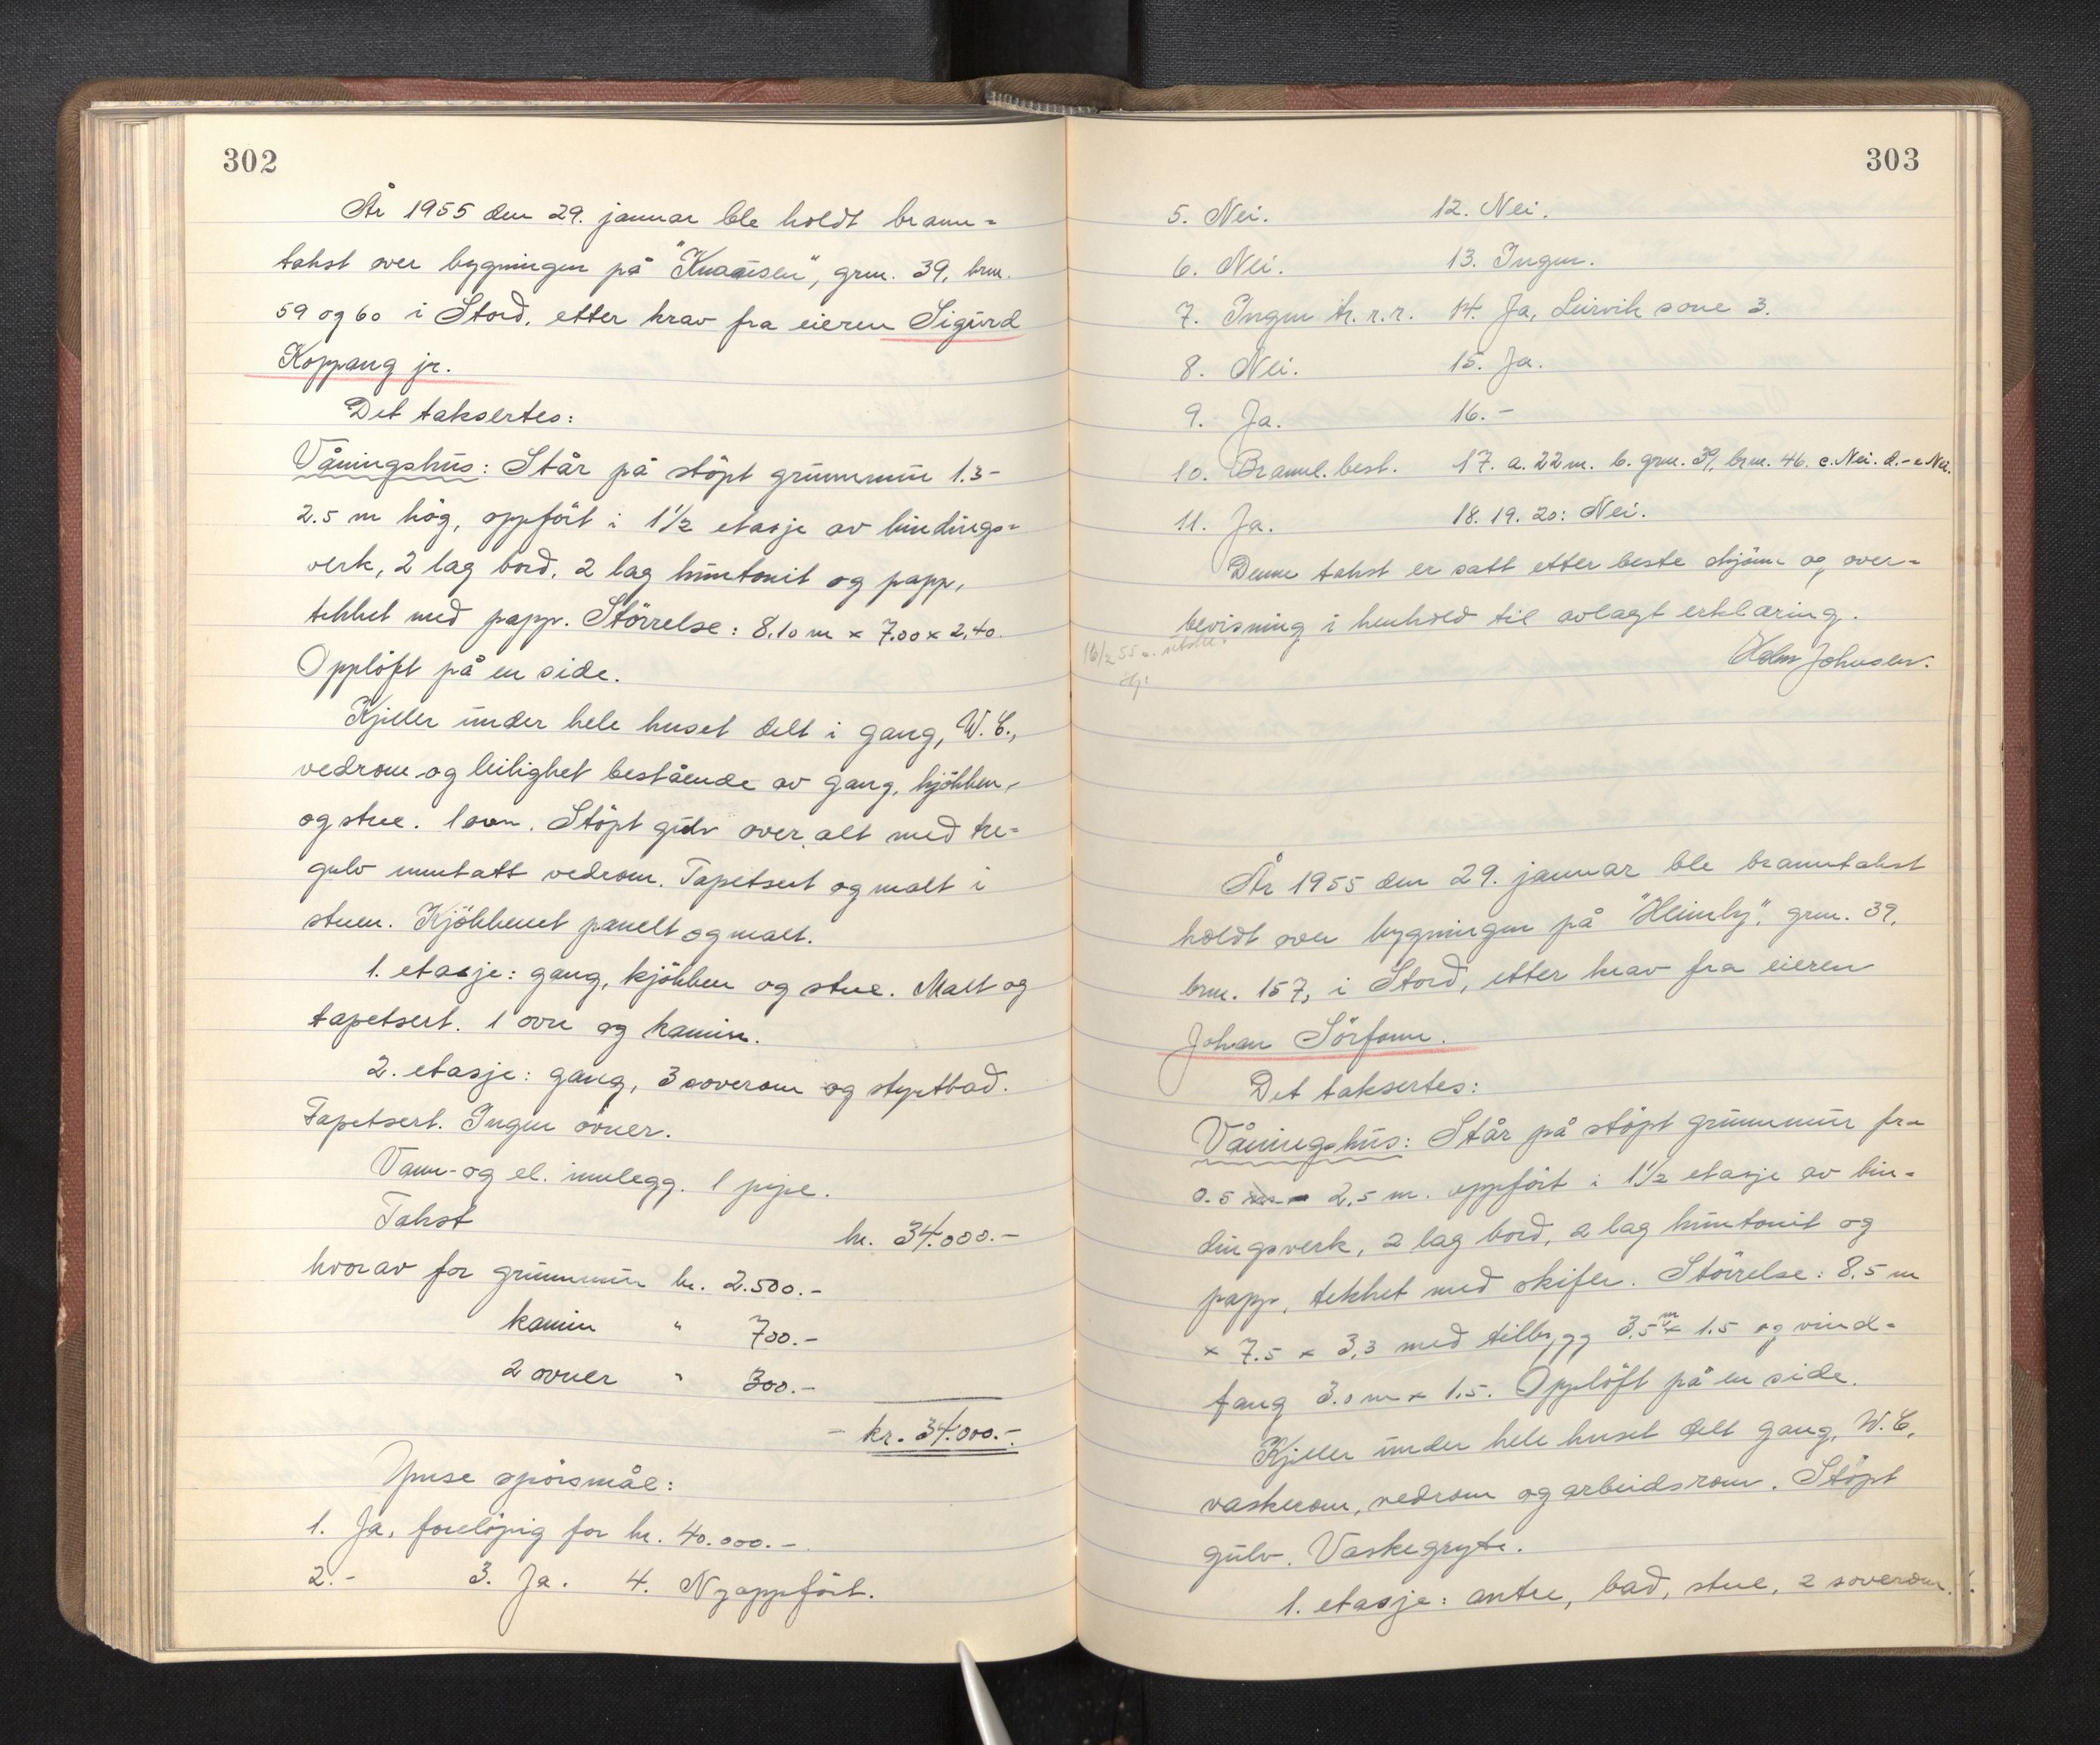 302
År 1955 den 29. januar ble holdt brann-
takst over bygningen på "Knausen", grn. 39, brn.
59 og 60 i Stord, etter krav fra eieren Sigurd
Koppang jr.
Det taksertes:
Våningshus: Står på stöpt grunnmur 1.3-
2.5 m hög, oppfört i 1½ etasje av bindings-
verk, 2 lag bord, 2 lag huntonit og papp,
tekket med papp. Störrelse: 8.10 m x 7.00 x 2.40.
Opplöft på en side.
Kjeller under hele huset delt i gang, W.C.,
vedrom og leilighet bestående av gang, kjökken,
og stue. 1 ovn. Stöpt gulv over alt med tre-
gulv unntatt vedrom. Tapetsert og malt i
stuen. Kjökkenet panelt og malt.
1. etasje: gang, kjökken og stue. Malt og
tapetsert. 1 ovn og kamin.
2. etasje: gang, 3 soverom og styrtbad.
Tapetsert. Ingen ovner.
Vann- og el. innlegg. 1 pipe.
Takst kr. 34.000.-
hvorav for grunnmur kr. 2.500.-
kamin " 700.-
2 ovner " 300.-
- kr. 34.000.-
Ymse spörsmål:
1. Ja, forelöpig for kr. 40.000.-
2. - 3. Ja. 4. Nyoppfört.
303
5. Nei. 12. Nei.
6. Nei. 13. Ingen.
7. Ingen tr. r. r. 14. Ja, Leirvik sone 3.
8. Nei. 15. Ja.
9. Ja. 16. -
10. Brannl. best. 17. a. 22 m. b. grn. 39, brn. 46. c. Nei. d. - e Nei.
11. Ja. 18. 19. 20: Nei.
Denne takst er satt etter beste skjönn og over-
bevisning i henhold til avlagt erklæring.
16/2 55
Johnsen.
År 1955 den 29. januar ble branntakst
holdt over bygningen på "Heimly", grn. 39,
brn. 157, i Stord, etter krav fra eieren
Johan Sörfonn.
Det taksertes:
Våningshus: Står på stöpt grunnmur fra
0.5 m - 2,5 m. oppfört i 1½ etasje av bin-
dingsverk, 2 lag bord, 2 lag huntonit og
papp, tekket med skifer. Störrelse: 8.5 m
x 7.5 x 3,3 med tilbygg 3,5 m x 1.5 og vind-
fang 3.0 m x 1,5. Opplöft på en side.
Kjeller under hele huset delt gang, W.C,
vaskerom, vedrom og arbeidsrom. Stöpt
gulv. Vaskegryte.
1. etasje: antre, bad, stue, 2 soverom.